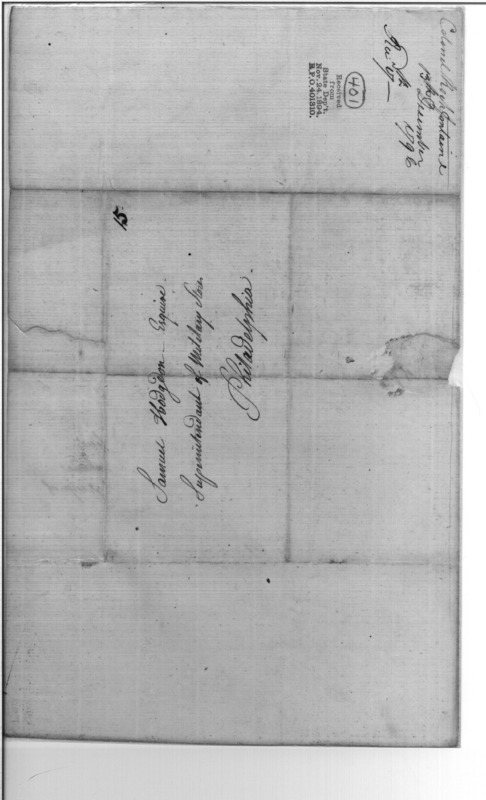 Colonel
13th December
1796
401
Received
from
State Dep't.
Nov. 24, 1894.
R.P.O. 401310.
15
Samuel Hodgdon Esquire.
Superintendant of Military Stores.
Philadelphia.